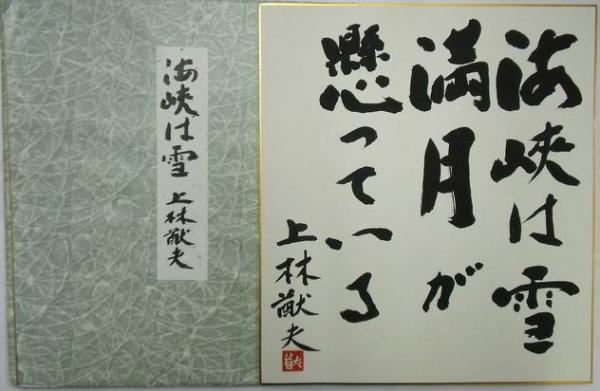 海峡は雪
上林猷夫
海峡は雪
満月が
懸っている
上林猷夫